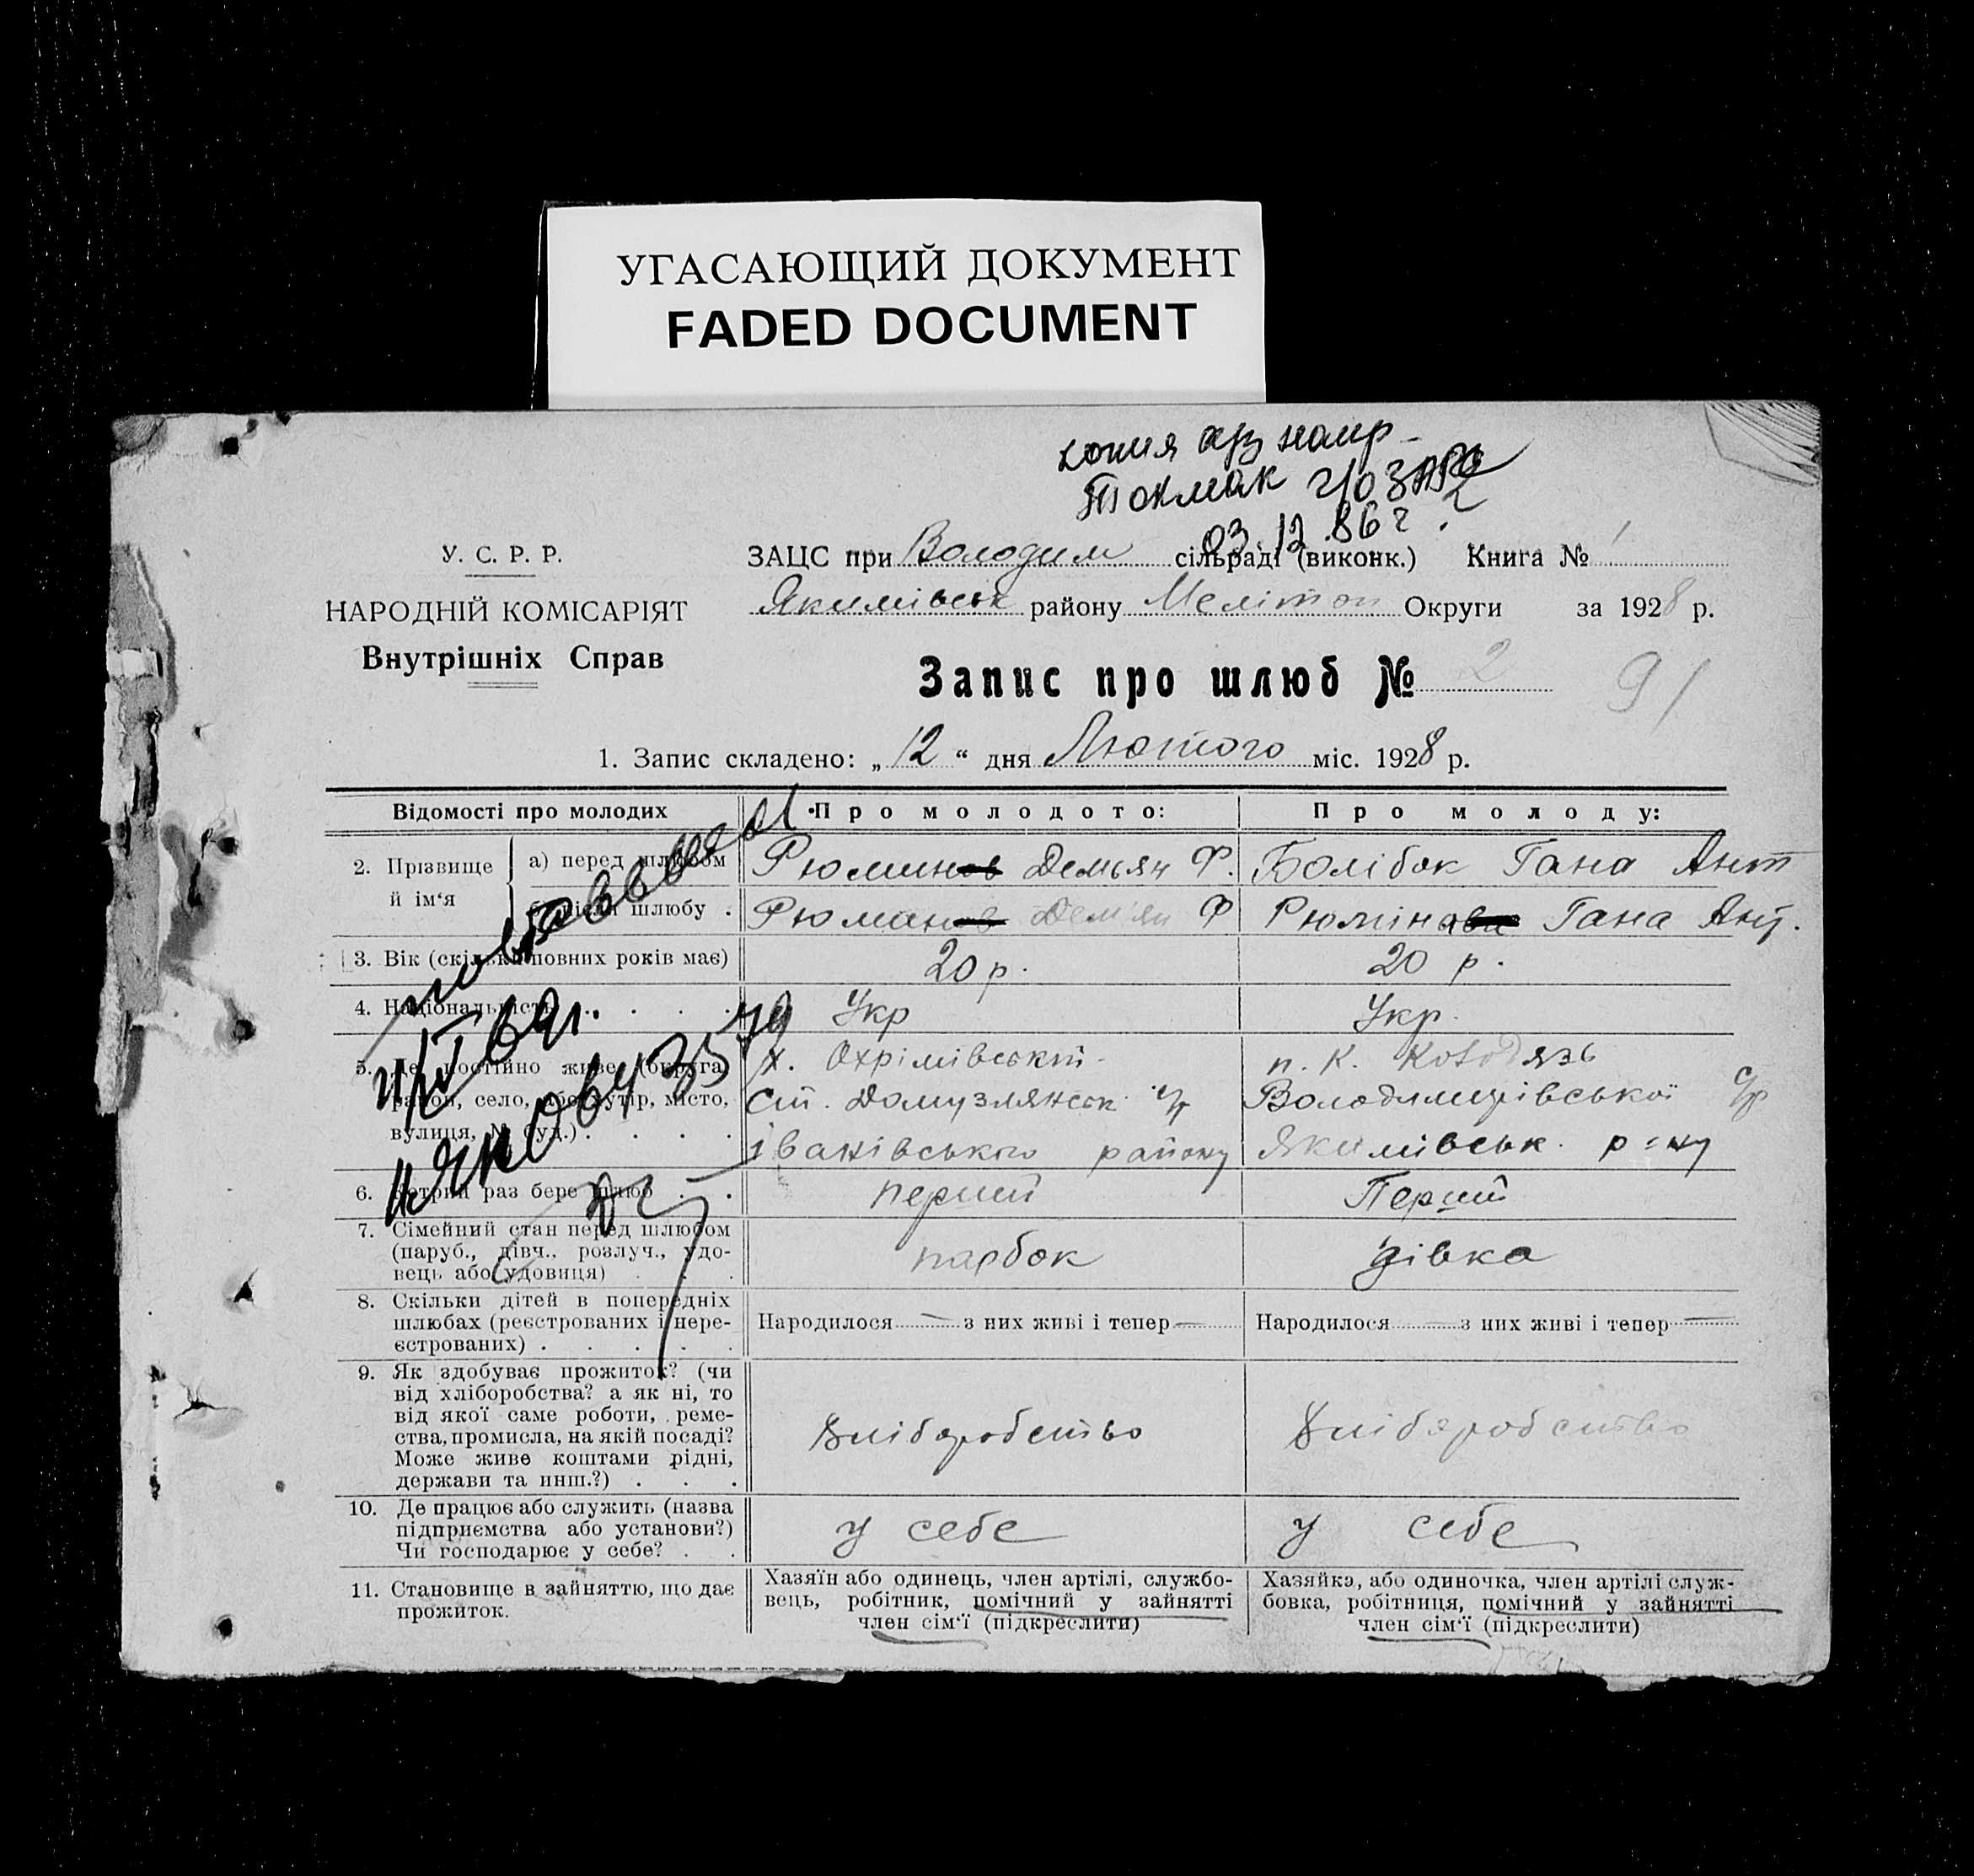 УГАСАЮЩИЙ ДОКУМЕНТ
FADED DOCUMENT
копия
Токмак
03.12.86 г.
У. С. Р. Р.
НАРОДНІЙ КОМІСАРІЯТ
Внутрішніх Справ
ЗАЦС при Володим сільраді (виконк.) Книга №
Якимівськ району Мелітоп Округи за 1928 р.
Запис про шлюб № 2
91
1. Запис складено: „12“ дня Лютого міс. 1928 р.
Відомості про молодих Про молодого: Про молоду:
2. Прізвище й ім‘я
а) перед шлюбом Рюминов Демьян Ф. Болібок Гана Ант
б) після шлюбу . Рюманов Дем'ян Ф Рюмінава Гана Ант.
3. Вік (скільки повних років має) 20 р. 20 р.
4. Національність . . . . Укр Укр.
5. Де постійно живе (округа,
район, село, або хутір, місто,
вулиця, № буд.) . . . .
х. Охрімівський
ст. Домузлянськ с/р
іванівського району
п. К. Колодязь
Володимирівської с/р
Якимівськ. р-ну
6. Котрий раз бере шлюб . . перший Перший
7. Сімейний стан перед шлюбом
(паруб., дівч., розлуч., удо-
вець або удовиця) . . .
парбок дівка
8. Скільки дітей в попередніх
шлюбах (реєстрованих і нере-
єстрованих) . . . . .
Народилося — з них живі і тепер — Народилося — з них живі і тепер —
9. Як здобуває прожиток? (чи
від хліборобства? а як ні, то
від якої саме роботи, реме-
ства, промисла, на якій посаді?
Може живе коштами рідні,
держави та инш.?) . . .
Хліборобство Хліборобство
10. Де працює або служить (назва
підприємства або установи?)
Чи господарює у себе? . .
у себе у себе
11. Становище в зайняттю, що дає
прожиток.
Хазяїн або одинець, член артілі, службо-
вець, робітник, помічний у зайнятті
член сім‘ї (підкреслити)
Хазяйка, або одиночка, член артілі служ-
бовка, робітниця, помічний у зайнятті
член сім‘ї (підкреслити)